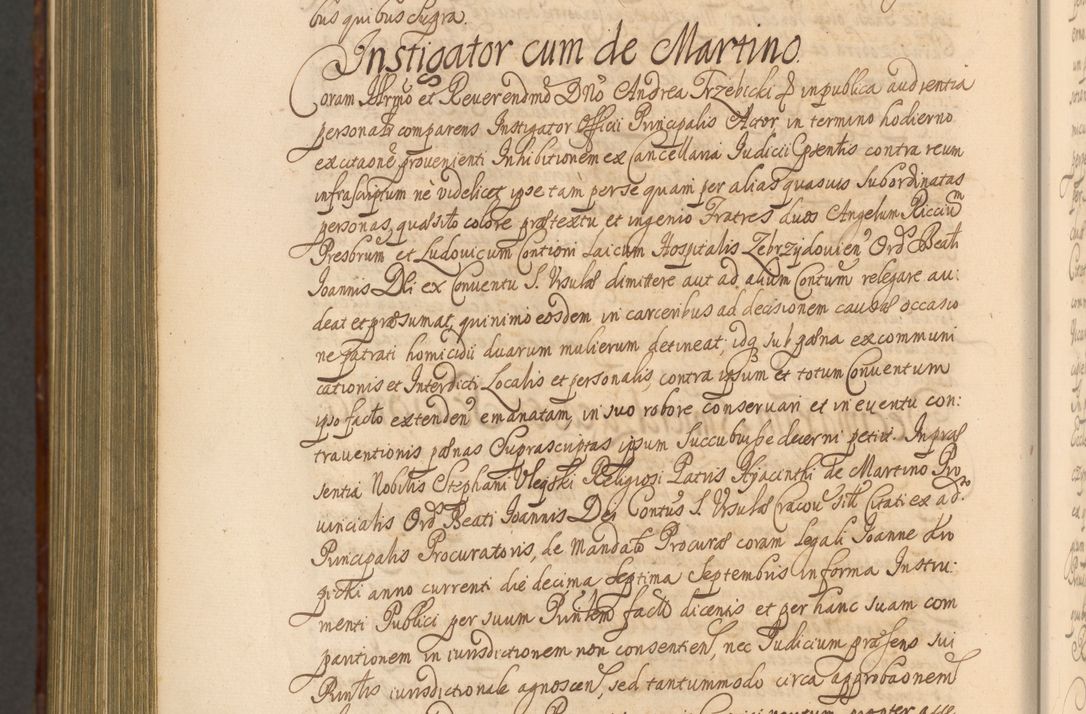 bus quibus supra.
Instigator cum de Martino.
Coram Illrmo et Reverendmo Dno Andrea Trzebicki Ep in publica audientia
personalr comparens Instigator Officii Principalis Actor in termino hodierno
ex citaone provenienti Inhibitionem ex Cancellaria Judicii Gprntis contra reum
infrascriptum ne videlicet ipse tam per se quam per alias quasuis subordinatas
personas, quaesito colore praetextu et ingenio Fratres duos Angelum Ricciu m
Presbrum et Ludovicum Contioni Laicum Hospitalis Zebrzijdovien Ords Beati
Joannis Dei ex Conventu S. Ursulae dimittere aut ad alium Contum relegare au:
deat et praesumat, quinimo eosdem in carceribus ad decisionem causae occasio
ne patrati homicidii duarum mulierum detineat, idq sub paena excommuni
cationis et Interdicti Localis et personalis, contra ipsum et totum Conventum
ipso facto extenden emanatam, in suo robore conservari et in eventu con:
traventionis paenas suprascriptas ipsum succubuisse decerni petiit. In prae
sentia Nobilis Stephani Uleyski Religiosi Patris Hyacinthi de Martino Pro
vincialis Ords Beati Joannis Dei Contus S. Ursulae Cracov Sitt Citati ex ad
Principalis Procuratoris, de Mandato Procurae coram Legali Joanne
picki anno currenti die decima septima Septembris in forma Instru:
menti Publici per suum Pnntem facto dicentis et per hanc suam com
paritionem in iurisdictionem non consentien, nec Judicium praesens sui
Pnntis iurisdictionale agnoscen, sed tantummodo circa approbaonem